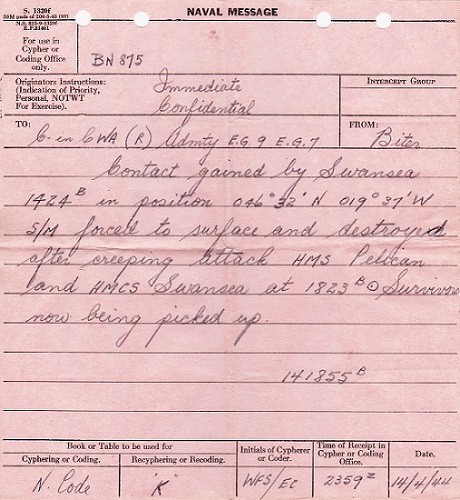 S. 1320f
NAVAL MESSAGE
For use in
Cypher or
Coding Office
only.
BN 875
Originators Instructions:
(Indication of Priority,
Personal, NOTWT
For Exercise).
Immediate
Confidential
INTERCEPT GROUP
TO:
C-in-C WA (R) Admty E.G. 9 E.G. 7
FROM:
Biter
Contact gained by Swansea
1424 B in position 046° 32' N 019° 37' W
S/M forced to surface and destroyed
after creeping attack HMS Pelican
and HMCS Swansea at 1823 B ⊙ Survivors
now being picked up.
141855 B
Book or Table to be used for
Cyphering or Coding.
Recyphering or Recoding.
Initials of Cypherer
or Coder.
Time of Receipt in
Cypher or Coding
Office.
Date.
N. Code
K
WFS/EC
2359 Z
14/4/44